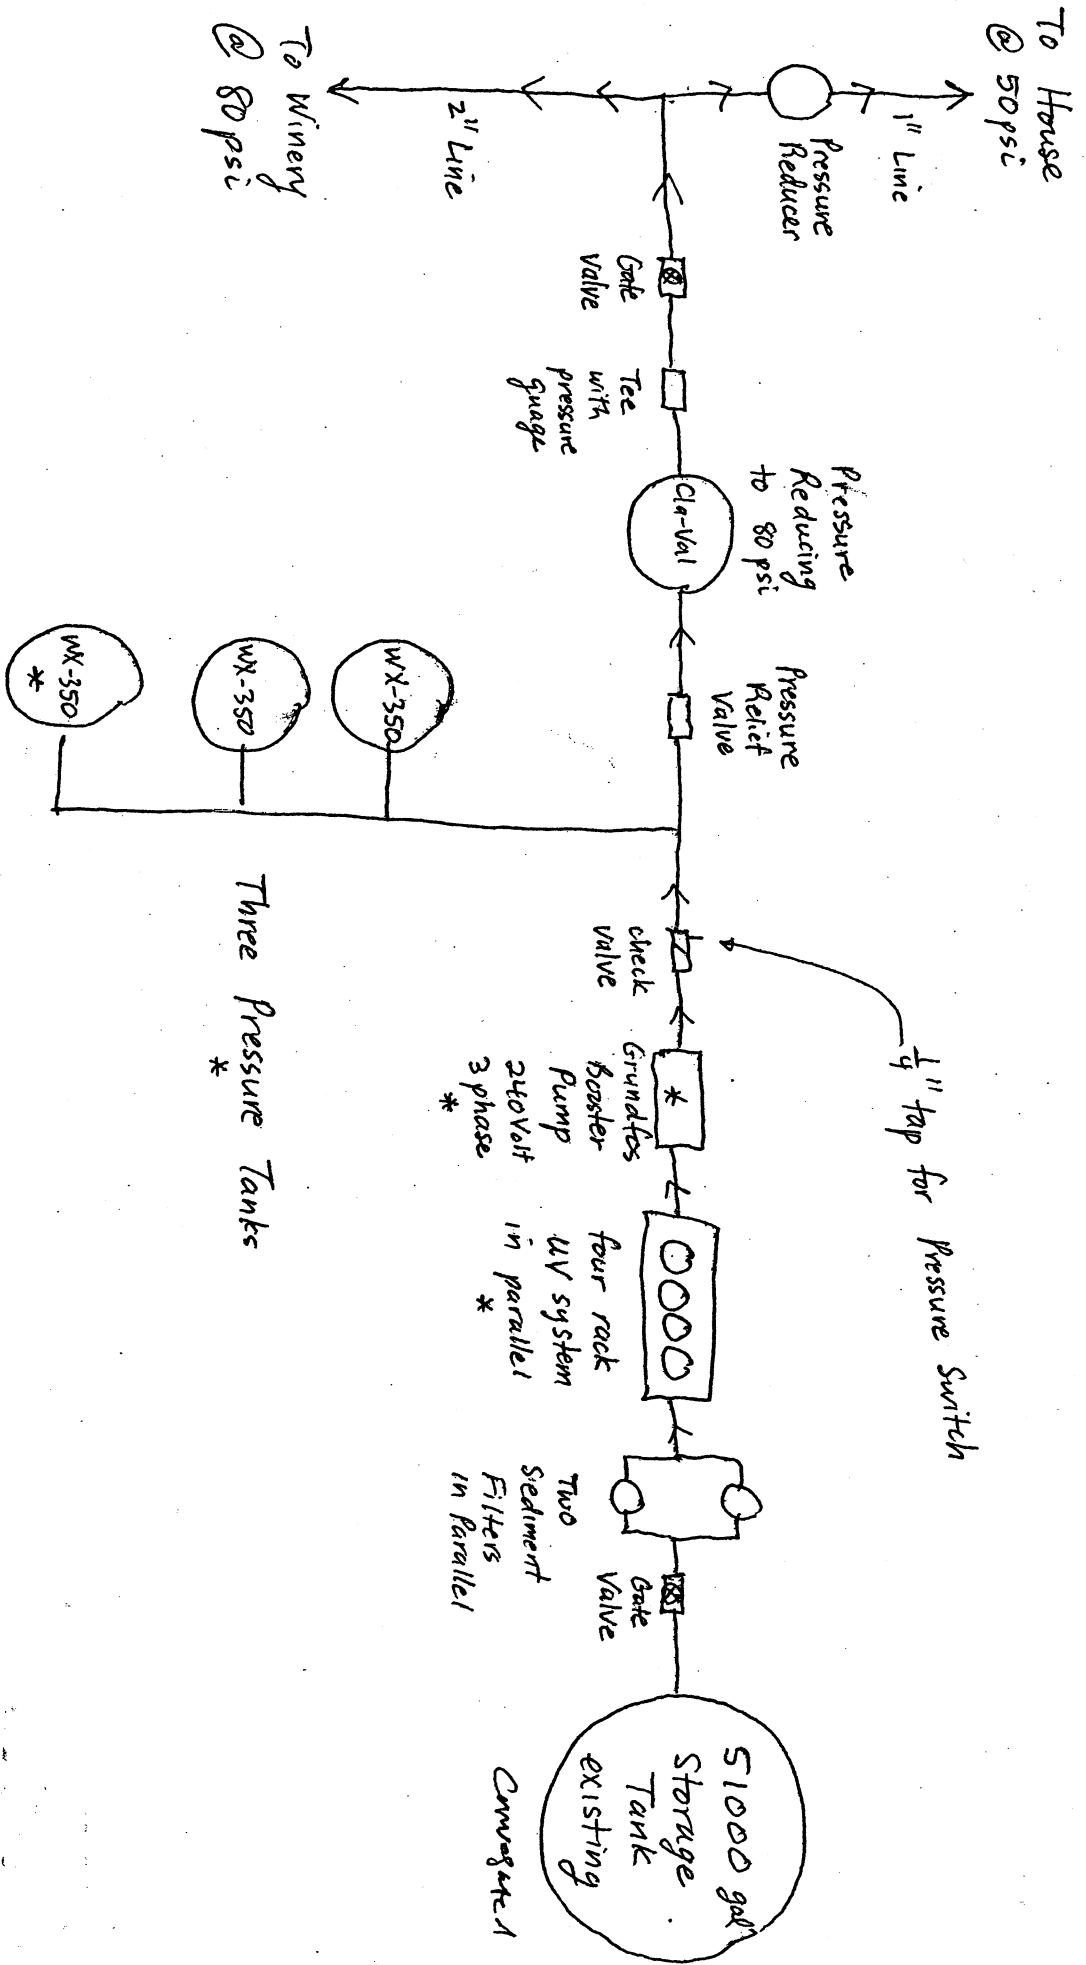 To House
@ 50 psi
1" Line
Pressure
Reducer
To Winery
@ 80 psi
2" Line
Gate
Valve
Tee
with
pressure
guage
Pressure
Reducing
to 80 psi
Cla-Val
Pressure
Relief
Valve
WX-350
WX-350
WX-350
*
Three Pressure Tanks
*
check
valve
1/4" tap for Pressure Switch
*
Grundfos
Booster
Pump
240 Volt
3 phase
*
four rack
UV system
in parallel
*
Two
Sediment
Filters
in Parallel
Gate
Valve
51000 gal
Storage
Tank
existing